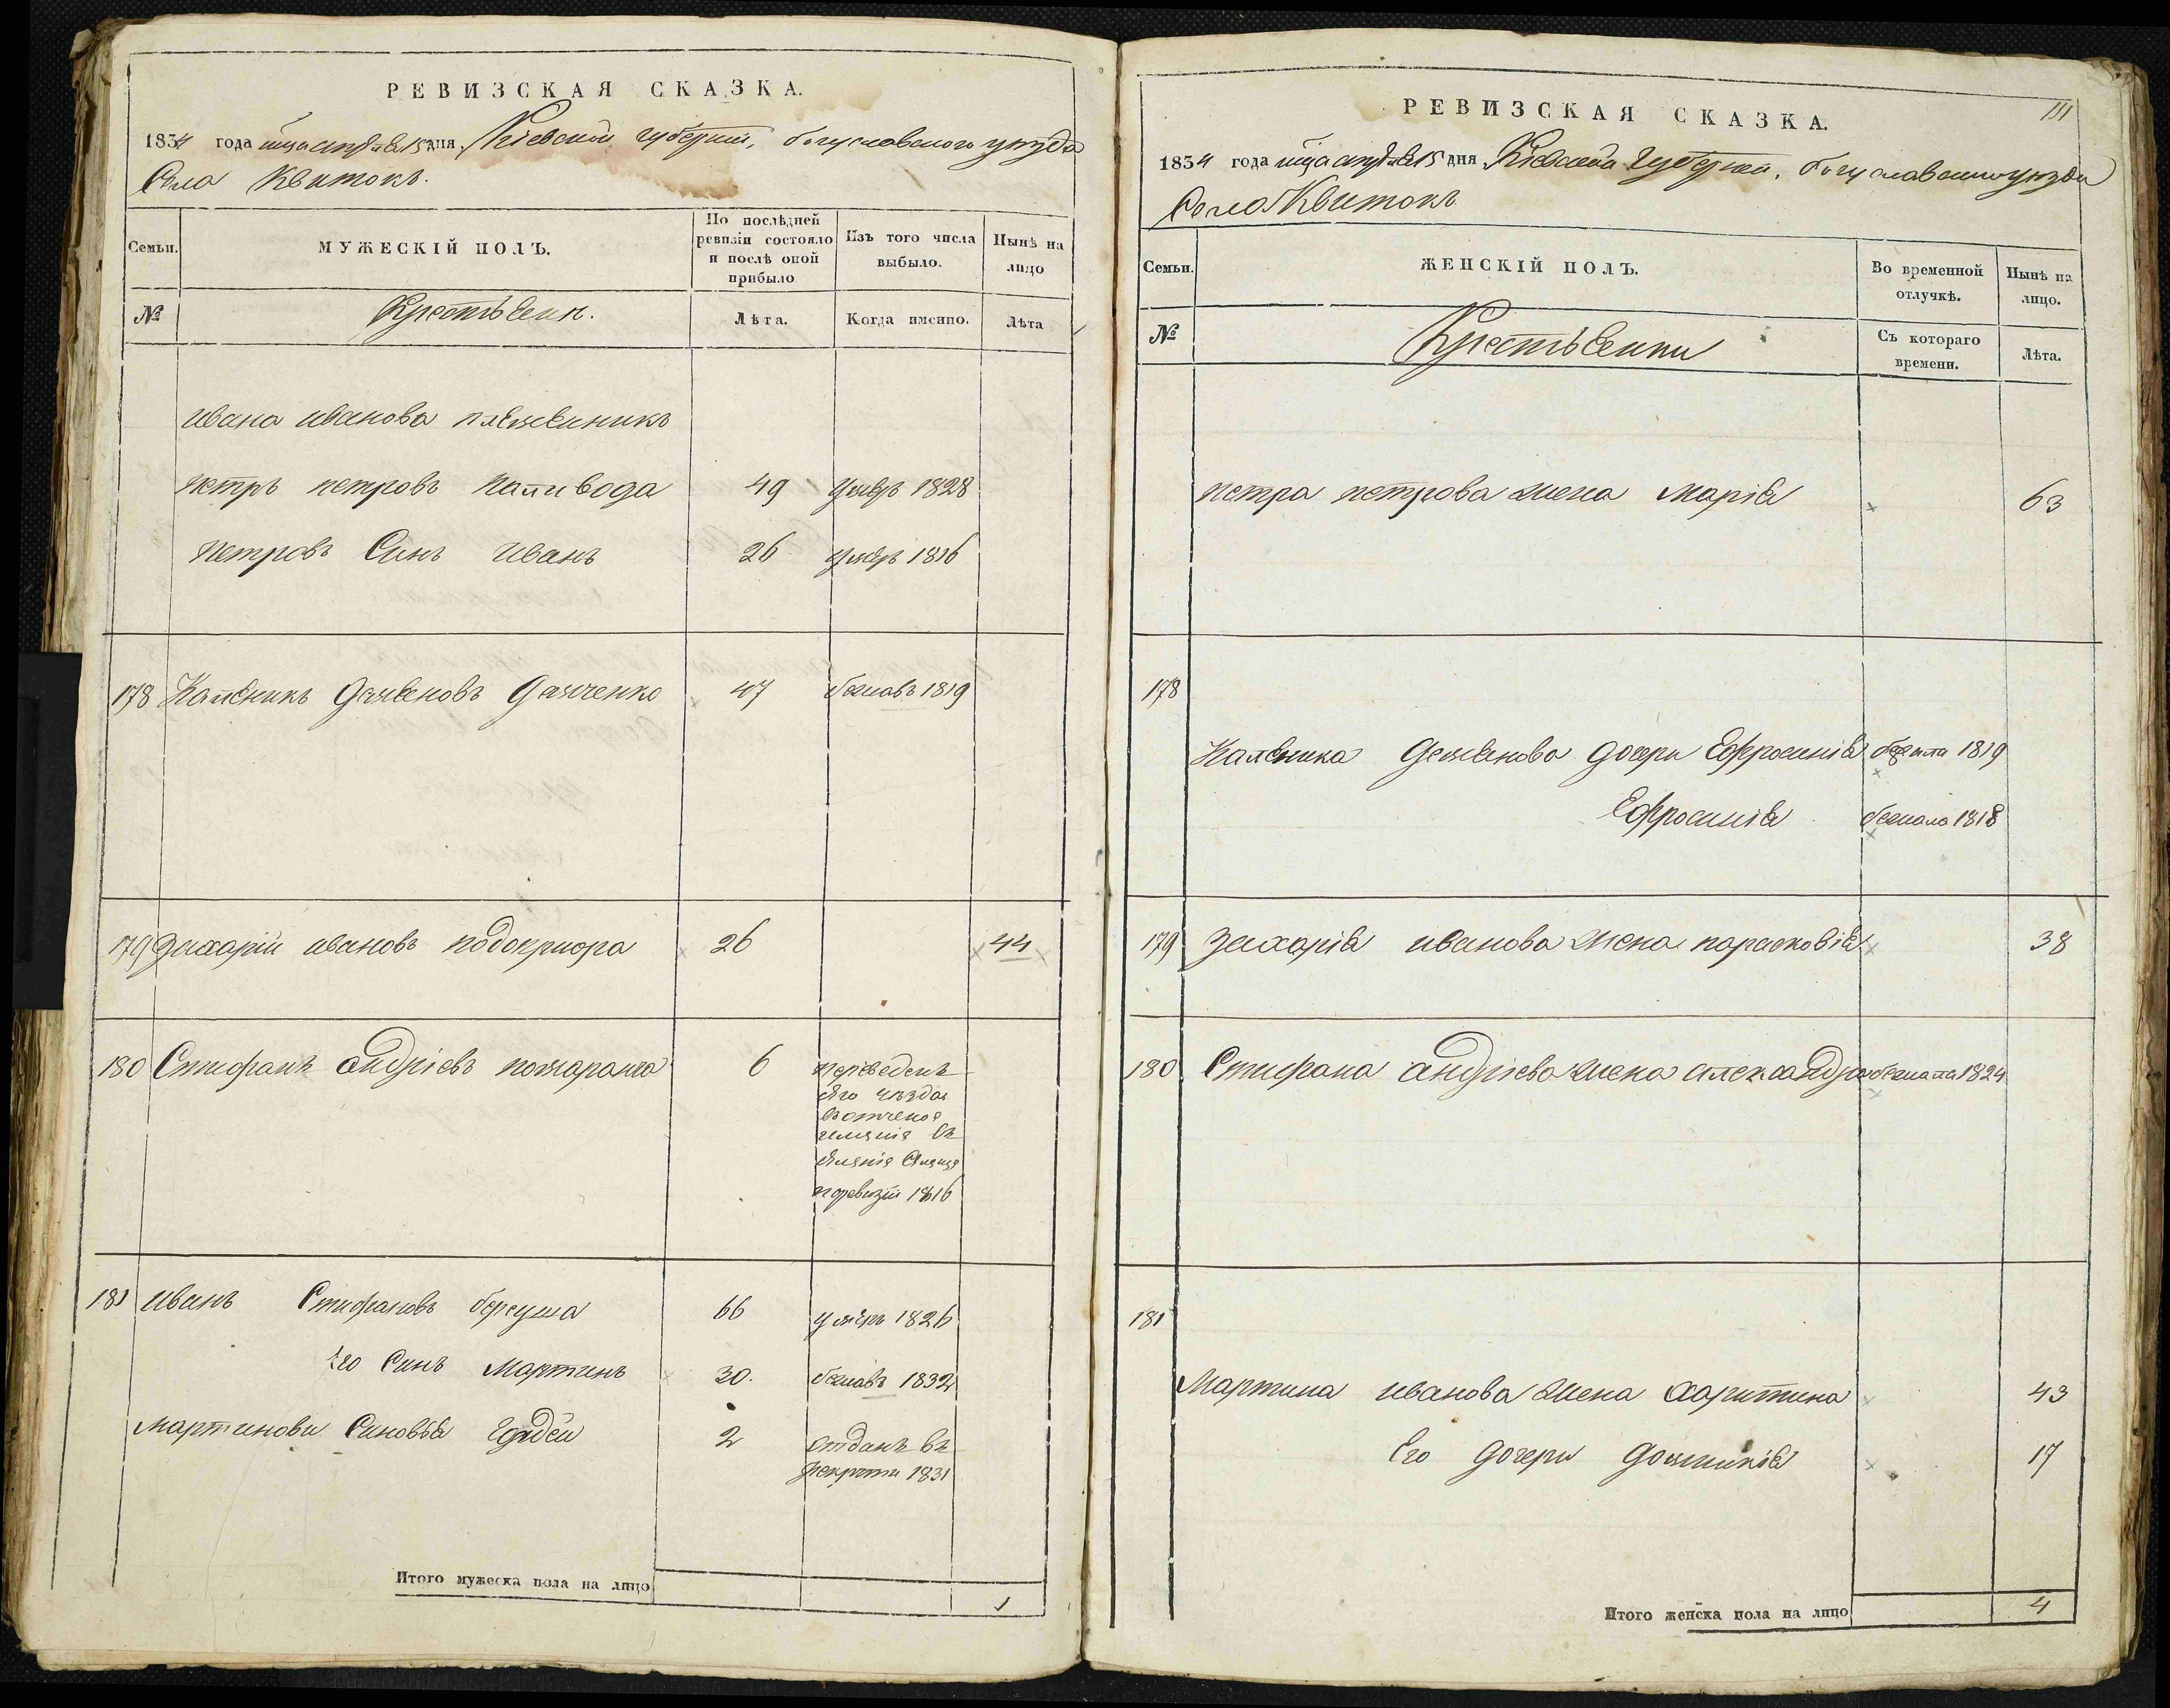 РЕВИЗСКАЯ СКАЗКА.
1834 года мца апреля 15 дня Кіевской губерніи, богуславского уезда
Села Квитокъ.
Семьи.
МУЖЕСКІЙ ПОЛЪ.
По послѣдней ревизіи состояло и послѣ оной прибыло
Изъ того числа выбыло.
Нынѣ на лицо
№
Крестьяни.
Лѣта.
Когда именно.
Лѣта
ивана иванова
петръ петровъ каливода 49 умеръ 1828
петровъ Синъ иванъ 26 умеръ 1816
178 Каленикъ 47 бежавъ 1819
179 Захарій ивановъ 26 44
180 Стифанъ андріевъ 6 переведенъ
ревизіи 1816
181 иванъ Стифановъ 66 умеръ 1826
его Синъ Мартинъ 30. бежавъ 1832
Мартинови Синовья Гордей 2 отданъ въ
рекруты 1831
Итого мужеска пола на лицо 1
111
РЕВИЗСКАЯ СКАЗКА.
1834 года мца апреля 15 дня Кіевской Губерніи, богуславского уезда
Села Квитокъ
Семьи.
ЖЕНСКІЙ ПОЛЪ.
Во временной отлучкѣ.
Нынѣ на лицо.
№
Крестьянки
Съ котораго времени.
Лѣта.
петра петрова жена Марія 63
178
Каленика дочери Ефросинія 1819
Ефросинія бежала 1818
179 Захарія иванова жена парасковія 38
180 Стифана андріева жена александра бежала 1824
181
Мартина иванова жена Харитина 43
Его дочери 17
Итого женска пола на лицо 4